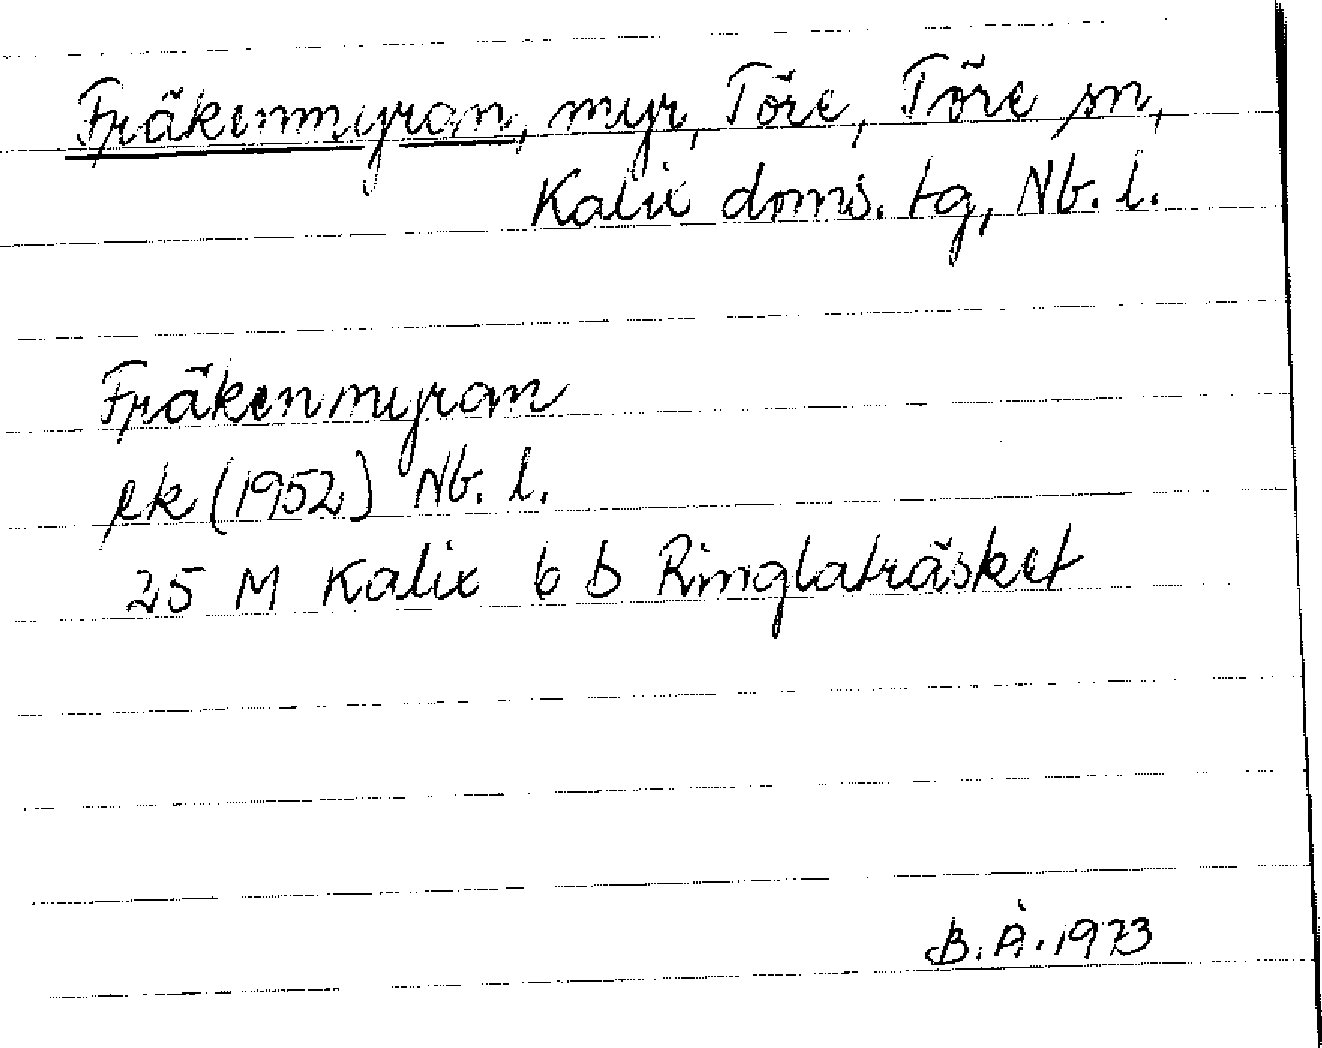 Fräkenmyran, myr, Töre, Töre sn,
Kalix doms. tg, Nb. l.
Fräkenmyran
ek (1952) Nb. l.
25 M Kalix 6 b Ringlaträsket
B. Å. 1973